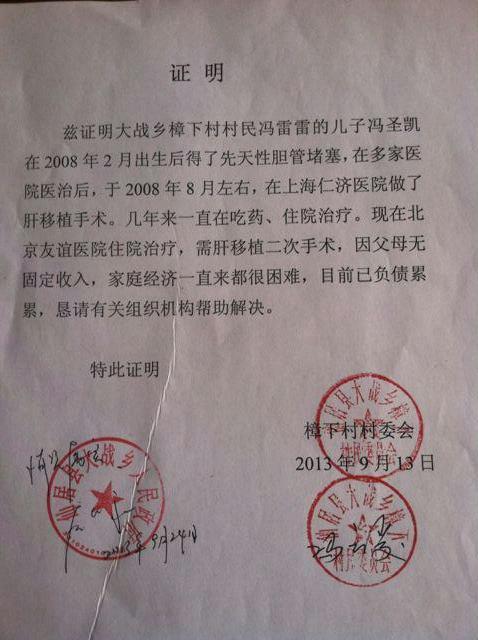 证明
兹证明大战乡樟下村村民冯雷雷的儿子冯圣凯
在 2008 年 2 月出生后得了先天性胆管堵塞，在多家医
院医治后，于 2008 年 8 月左右，在上海仁济医院做了
肝移植手术。几年来一直在吃药、住院治疗。现在北
京友谊医院住院治疗，需肝移植二次手术，因父母无
固定收入，家庭经济一直来都很困难，目前已负债累
累，恳请有关组织机构帮助解决。
特此证明
仙居县大战乡樟下
村民委员会
樟下村村委会
2013 年 9 月 13 日
情况属实
仙居县大战乡人民政府
2013年9月24日
仙居县大战乡樟下
村民委员会